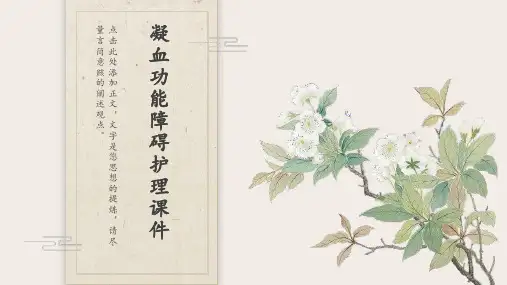 凝血功能障碍护理课件
点击此处添加正文，文字是您思想的提炼，请尽
量言简意赅的阐述观点。